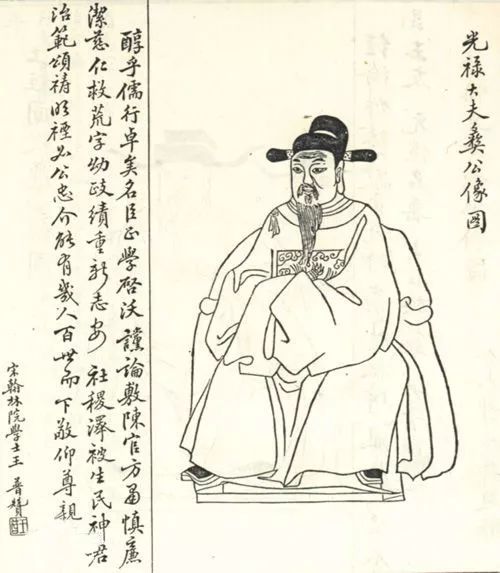 光禄大夫彝公像图
醇乎儒行卓矣名臣正學啓沃讜論敷陳官方勗慎廉
潔慈仁救荒字幼政績重新志安社稷澤被生民神
治範頌禱明禋如公忠介能有幾人百世而下敬仰尊親
宋翰林院學士王普贊